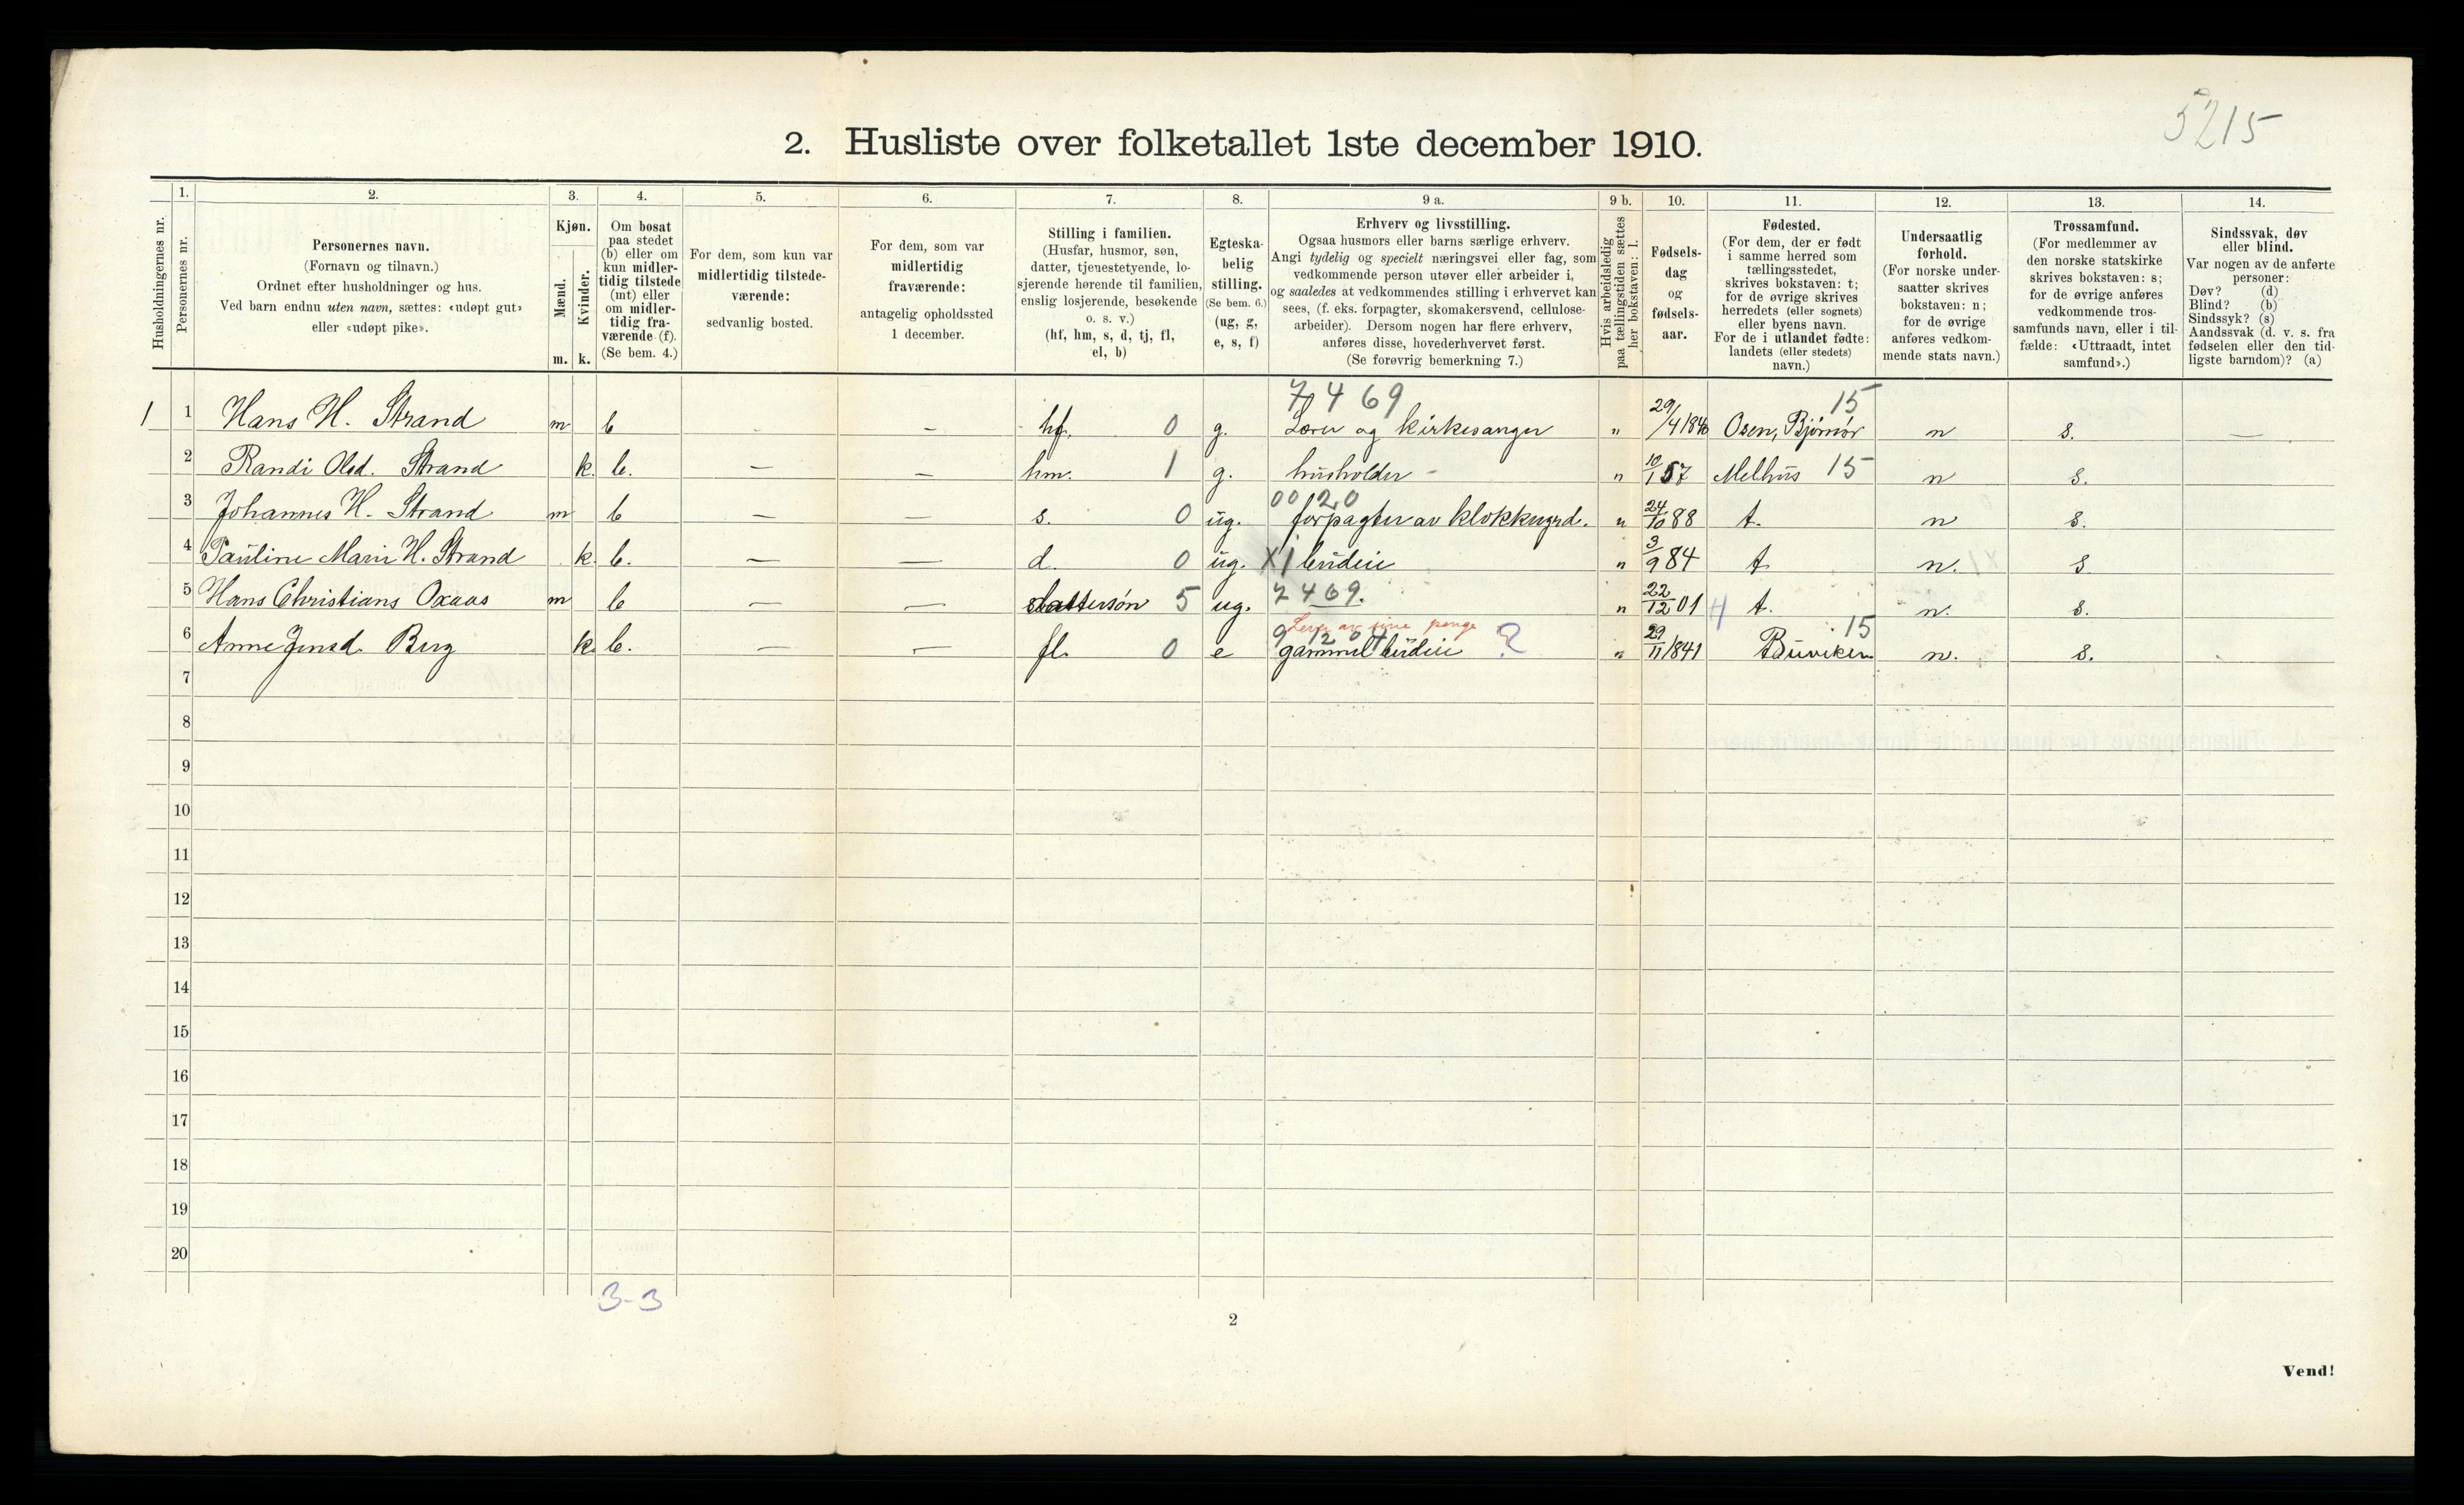 5215
2. Husliste over folketallet 1ste december 1910.
Husholdningernes nr.
1.
Personernes nr.
2.
Personernes navn.
(Fornavn og tilnavn.)
Ordnet efter husholdninger og hus.
Ved barn endnu uten navn, sættes: «udøpt gut»
eller «udøpt pike».
3.
Kjøn.
Mænd.
Kvinder.
m. k.
4.
Om bosat
paa stedet
(b) eller om
kun midler-
tidig tilstede
(mt) eller
om midler-
tidig fra-
værende (f).
(Se bem. 4.)
5.
For dem, som kun var
midlertidig tilstede-
værende:
sedvanlig bosted.
6.
For dem, som var
midlertidig
fraværende:
antagelig opholdssted
1 december.
7.
Stilling i familien.
(Husfar, husmor, søn,
datter, tjenestetyende, lo-
sjerende hørende til familien,
enslig losjerende, besøkende
o. s. v.)
(hf, hm, s, d, tj, fl,
el, b)
8.
Egteska-
belig
stilling.
(Se bem. 6.)
(ug, g,
e, s, f)
9 a.
Erhverv og livsstilling.
Ogsaa husmors eller barns særlige erhverv.
Angi tydelig og specielt næringsvei eller fag, som
vedkommende person utøver eller arbeider i,
og saaledes at vedkommendes stilling i erhvervet kan
sees, (f. eks. forpagter, skomakersvend, cellulose-
arbeider). Dersom nogen har flere erhverv,
anføres disse, hovederhvervet først.
(Se forøvrig bemerkning 7.)
9 b.
Hvis arbeidsledig
paa tællingstiden sættes
her bokstaven: l.
10.
Fødsels-
dag
og
fødsels-
aar.
11.
Fødested.
(For dem, der er født
i samme herred som
tællingsstedet,
skrives bokstaven: t;
for de øvrige skrives
herredets (eller sognets)
eller byens navn.
For de i utlandet fødte:
landets (eller stedets)
navn.)
12.
Undersaatlig
forhold.
(For norske under-
saatter skrives
bokstaven: n;
for de øvrige
anføres vedkom-
mende stats navn.)
13.
Trossamfund.
(For medlemmer av
den norske statskirke
skrives bokstaven: s;
for de øvrige anføres
vedkommende tros-
samfunds navn, eller i til-
fælde: «Uttraadt, intet
samfund».)
14.
Sindssvak, døv
eller blind.
Var nogen av de anførte
personer:
Døv? (d)
Blind? (b)
Sindssyk? (s)
Aandssvak (d. v. s. fra
fødselen eller den tid-
ligste barndom)? (a)
7469 15
1 1 Hans H. Strand m b - - hf. 0 g. Lærer og kirkesanger " 29/4 1840 Osen, Bjørnør n s. —
2 Randi Olsd. Strand k. b. — — hm. 1 g. husholder - " 10/1 57 Melhus 15 n s.
0020
3 Johannes H. Strand m b — — s. 0 ug. forpagter av klokkergrd. " 24/10 88 t. n s.
4 Pauline Marie H. Strand k. b. — — d. 0 ug. X1 budeie " 3/9 84 t. n. s.
5 Hans Christians Oxaas m b — — dattersøn 5 ug. 7469. " 22/12 01 t. n. s.
Lever av sine penge 15
6 Anne Jensd. Berg k. b. — — fl. 0 e gammel budeie ? " 29/11 1841 Buviken n. s.
7
8
9
10
11
12
13
14
15
16
17
18
19
20
3-3
2
Vend!